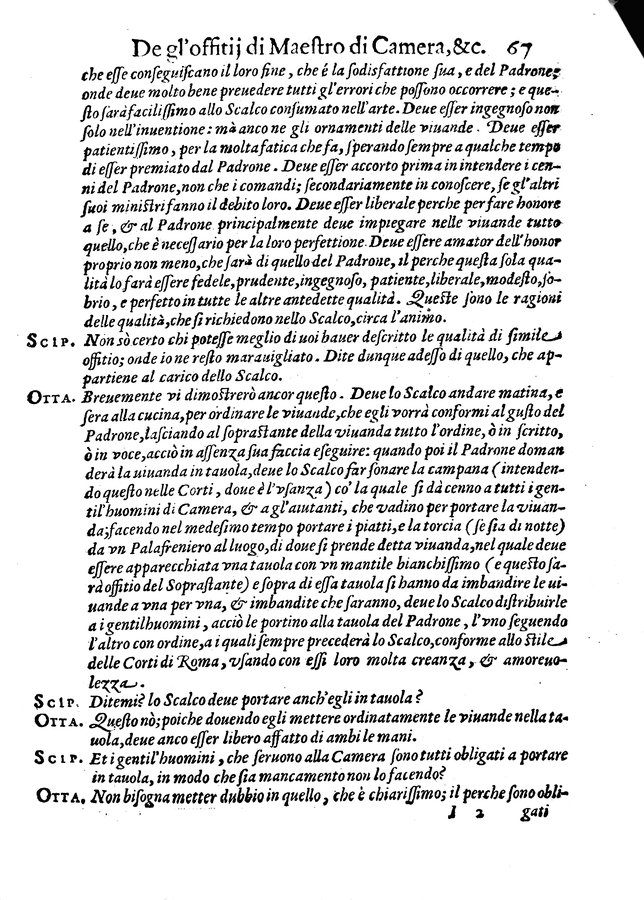 De gl'offitij di Maestro di Camera, &c. 67
che esse conseguiscano il loro fine, che é la sodisfattione sua, e del Padrone;
onde deue molto bene preuedere tutti gl'errori che possono occorrere; e que-
sto sarà facilissimo allo Scalco consumato nell'arte. Deue esser ingegnoso non
solo nell'inuentione: mà anco ne gli ornamenti delle viuande. Deue esser
patientissimo, per la molta fatica che fa, sperando sempre a qualche tempo
di esser premiato dal Padrone. Deue esser accorto prima in intendere i cen-
ni del Padrone, non che i comandi; secondariamente in conoscere, se gl'altri
suoi ministri fanno il debito loro. Deue esser liberale perche per fare honore
a se, & al Padrone principalmente deue impiegare nelle viuande tutto
quello, che è necessario per la loro perfettione. Deue essere amator dell'honor
proprio non meno, che sarà di quello del Padrone, il perche questa sola qua-
lità lo farà essere fedele, prudente, ingegnoso, patiente, liberale, modesto, so-
brio, e perfetto in tutte le altre antedette qualità. Queste sono le ragioni
delle qualità, che si richiedono nello Scalco, circa l'animo.
SCIP. Non sò certo chi potesse meglio di uoi hauer descritto le qualità di simile
offitio; onde io ne resto marauigliato. Dite dunque adesso di quello, che ap-
partiene al carico dello Scalco.
OTTA. Breuemente vi dimostrerò ancor questo. Deue lo Scalco andare matina, e
sera alla cucina, per ordinare le viuande, che egli vorrà conformi al gusto del
Padrone, lasciando al soprastante della viuanda tutto l'ordine, ò in scritto,
ò in voce, acciò in assenza sua faccia eseguire: quando poi il Padrone doman
derà la uiuanda in tauola, deue lo Scalco far sonare la campana (intenden-
do questo nelle Corti, doue è l'vsanza) cò la quale si dà cenno a tutti i gen-
til'huomini di Camera, & a gl'aiutanti, che vadino per portare la viuan-
da; facendo nel medesimo tempo portare i piatti, e la torcia (se sia di notte)
da vn Palafreniero al luogo, di doue si prende detta viuanda, nel quale deue
essere apparecchiata vna tauola con vn mantile bianchissimo (e questo sa-
rà offitio del Soprastante) e sopra di essa tauola si hanno da imbandire le ui-
uande a vna per vna, & imbandite che saranno, deue lo Scalco distribuirle
a i gentilhuomini, acciò le portino alla tauola del Padrone, l'vno seguendo
l'altro con ordine, a i quali sempre precederà lo Scalco, conforme allo stile
delle Corti di Roma, vsando con essi loro molta creanza, & amoreuo-
lezza.
SCIP. Ditemi? lo Scalco deue portare anch'egli in tauola?
OTTA. Questo nò; poiche douendo egli mettere ordinatamente le viuande nella ta-
uola, deue anco esser libero affatto di ambi le mani.
SCIP. Et i gentil'huomini, che seruono alla Camera sono tutti obligati a portare
in tauola, in modo che sia mancamento non lo facendo?
OTTA. Non bisogna metter dubbio in quello, che è chiarissimo; il perche sono obli-
I 2 gati